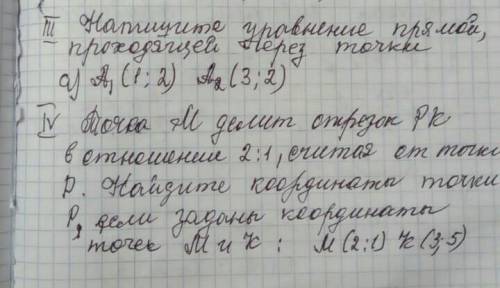 III Напишите уравнение прямой,
проходящей через точки
а) A₁ (1; 2) A₂ (3; 2)
IV Точка М делит отрезок РК
в отношении 2:1, считая от точки
Р. Найдите координаты точки
Р, если заданы координаты
точек М и К : М (2:1) К (3;5)